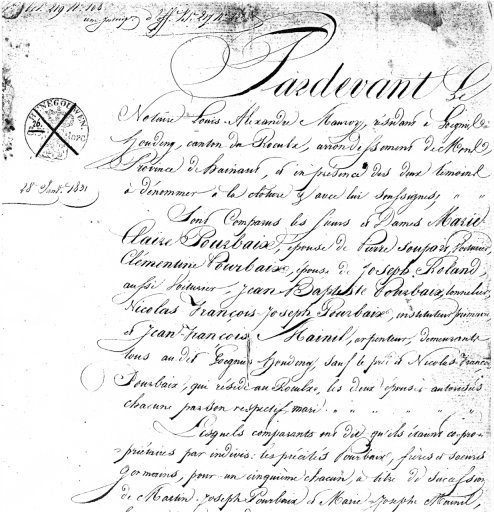 Pardevant Le
Notaire Louis-Alexandre Mauroy, résidant à Goegnies
HENEGOUWEN
Houdeng, canton du Roeulx, arrondissement de Mons
Province de Hainaut, et en présence des deux témoins
18 1831
à dénommer à la clôture et avec lui soussignés, " "
Sont Comparus les sieurs et Dames Marie
Claire Pourbaix, épouse de Pierre Soupart, Voiturier
Clémentine Pourbaix, épouse de Joseph Roland,
aussi Voiturier, Jean Baptiste Pourbaix, tonnelier,
Nicolas François-Joseph Pourbaix, instituteur primaire
et Jean-François Marnil, arpenteur, demeurants
tous au dit Goegnies Houdeng, sauf le précité Nicolas-François
Pourbaix, qui réside au Roeulx, les deux épouses autorisées
chacune par son respectif mari. " " " " "
Lesquels comparants ont dit qu'ils étaient co-pro-
priétaires par indivis: les précités Pourbaix, frères et soeurs
germains, pour un cinquième chacun, à titre de succession
de Martin-Joseph Pourbaix et Marie-Josephe Marnil,